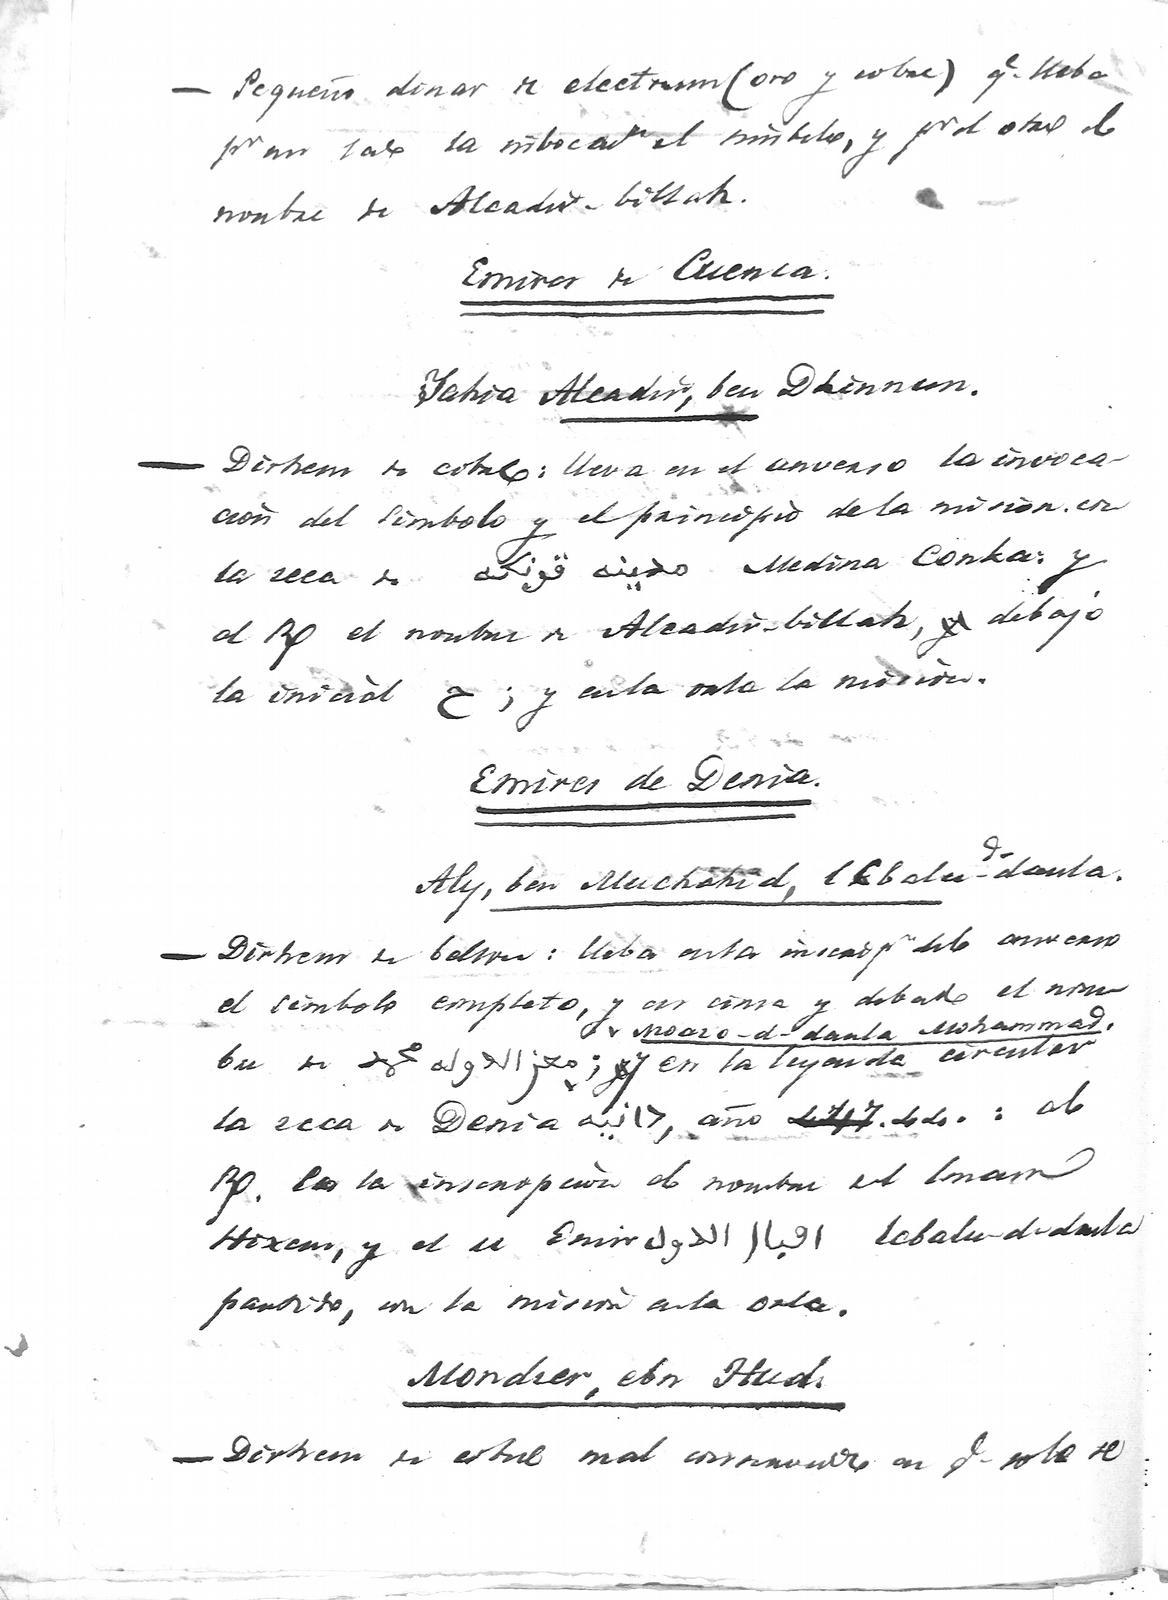 — Pequeño dinar de electrum (oro y cobre) q.e lleba
p.r un lado la inbocac.n del símbolo, y p.r el otro el
nombre de Alcadir-billah.
Emires de Cuenca.
Yahia Alcadir, ben Dhinnun.
— Dirhem de cobre: lleva en el anverso la invoca-
ción del símbolo y el principio de la mision con
la ceca de مدينه قونكه Medina Conka: y
al R/ el nombre de Alcadir-billah, debajo
la inicial ح ; y en la orla la mision.
Emires de Denia.
Aly, ben Muchahid, Icbalu-d-daula.
— Dirhem de bellon: lleba en la inscrip.n del anverso
el símbolo completo, y en cima y debajo el nom-
Moezo-d-daula Mohammad.
bre de معز الدوله محمد ; y en la leyenda circular
la ceca de Denia دانيه, año : al
R/. la inscripcion el nombre del Imam
Hixem, y el de Emir اقبال الدوله Icbalu-d-daula
partido, con la mision en la orla.
Mondzer, ebn Hud.
— Dirhem de cobre mal conservado en q.e solo se